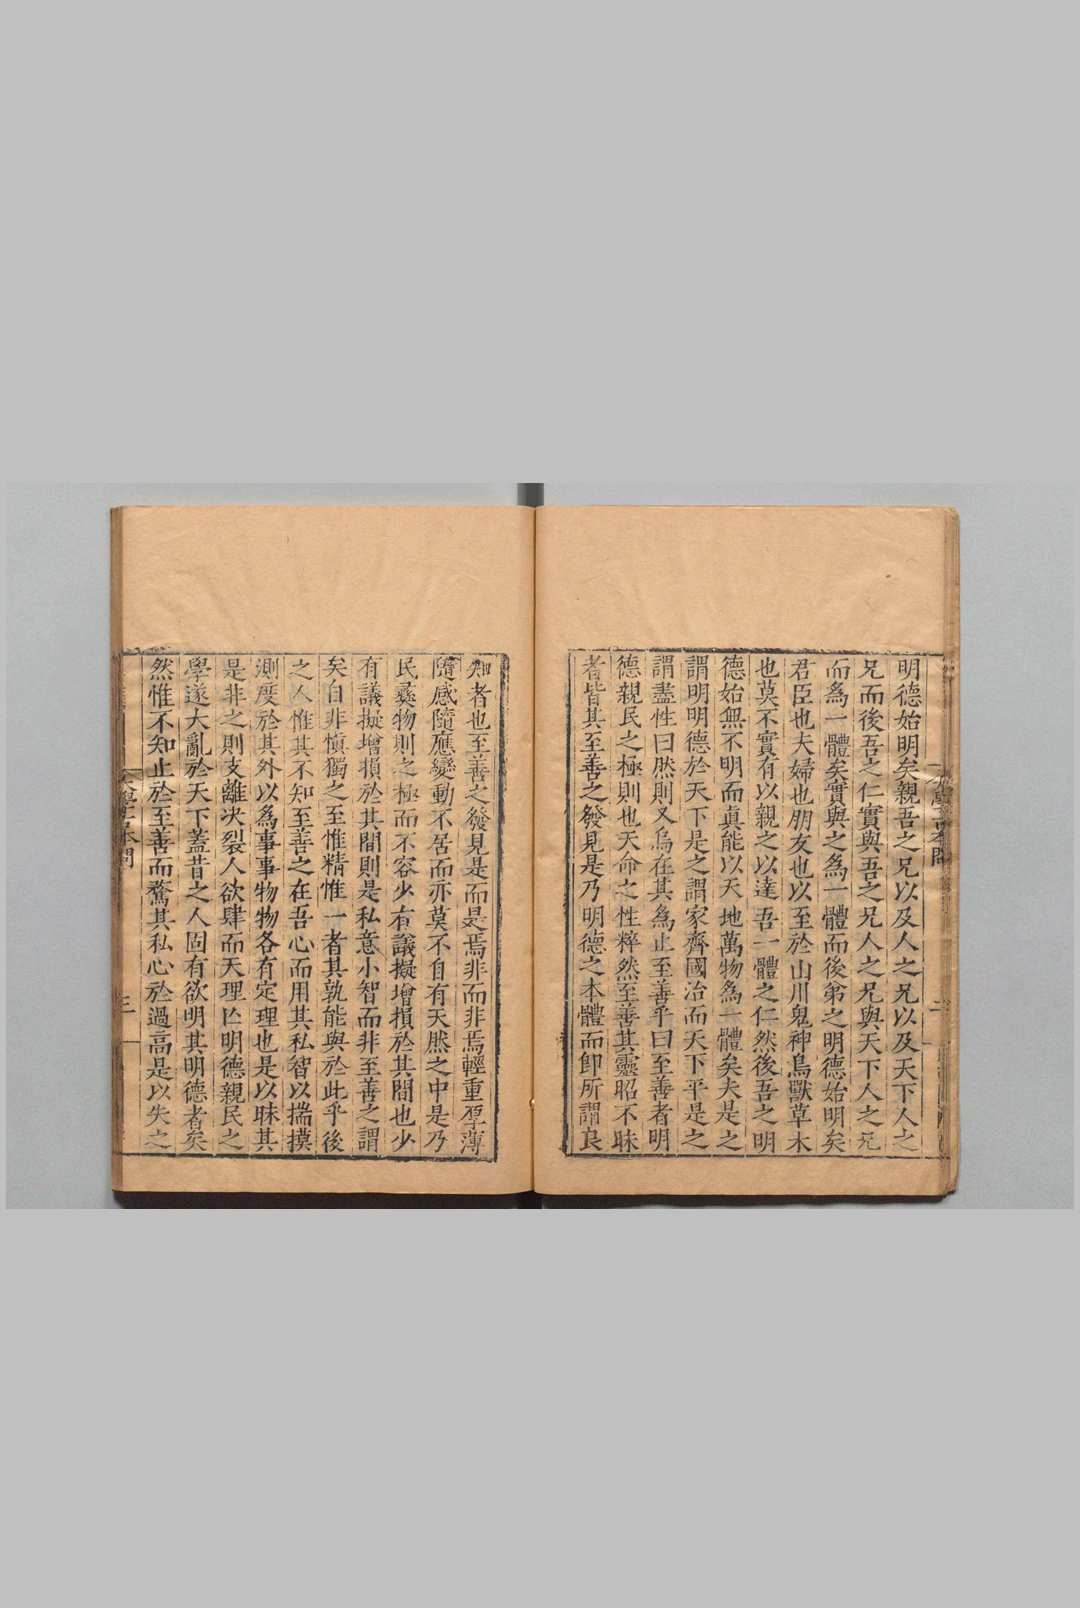 明德始明矣親吾之兄以及人之兄以及天下人之
兄而後吾之仁實與吾之兄人之兄與天下人之兄
而爲一體矣實與之爲一體而後弟之明德始明矣
君臣也夫婦也朋友也以至於山川鬼神鳥獸草木
也莫不實有以親之以達吾一體之仁然後吾之明
德始無不明而真能以天地萬物爲一體矣夫是之
謂明明德於天下是之謂家齊國治而天下平是之
謂盡性曰然則又烏在其爲止至善乎曰至善者明
德親民之極則也天命之性粹然至善其靈昭不昧
者皆其至善之發見是乃明德之本體而即所謂良
知者也至善之發見是而是焉非而非焉輕重厚薄
隨感隨應變動不居而亦莫不自有天然之中是乃
民彝物則之極而不容少有議擬增損於其間也少
有議擬增損於其間則是私意小智而非至善之謂
矣自非愼獨之至惟精惟一者其孰能與於此乎後
之人惟其不知至善之在吾心而用其私智以揣摸
測度於其外以爲事事物物各有定理也是以昧其
是非之則支離决裂人欲肆而天理亡明德親民之
學遂大亂於天下蓋昔之人固有欲明其明德者矣
然惟不知止於至善而騖其私心於過高是以失之